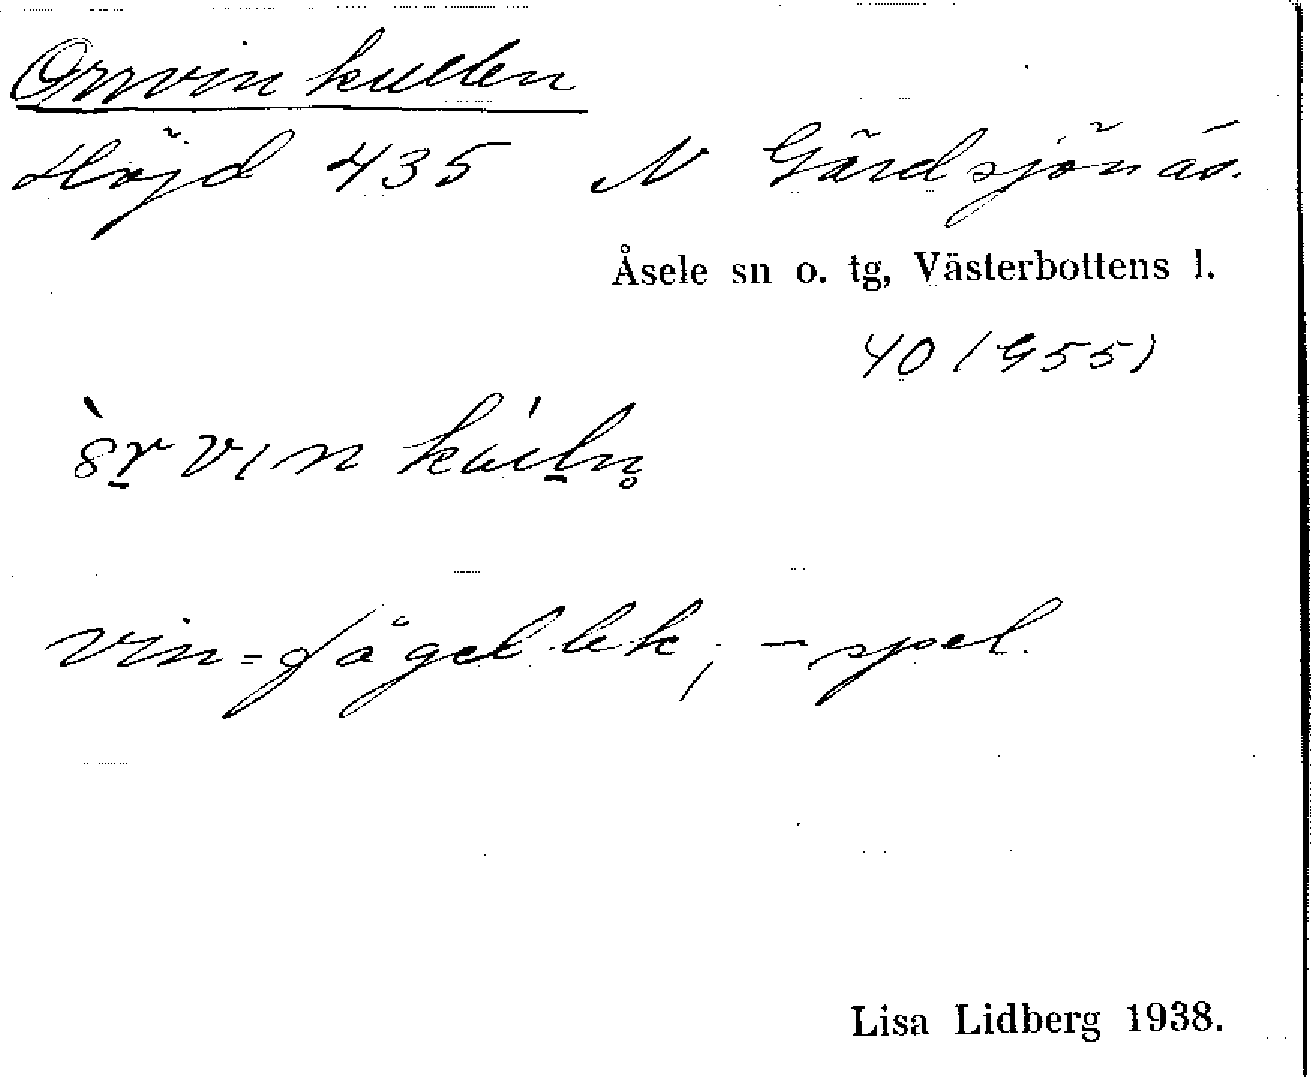 Orrvinkullen
Höjd 435 N Gärdsjönäs.
Åsele sn o. tg, Västerbottens l.
40 (955)
vin = fågellek, -spel.
Lisa Lidberg 1938.